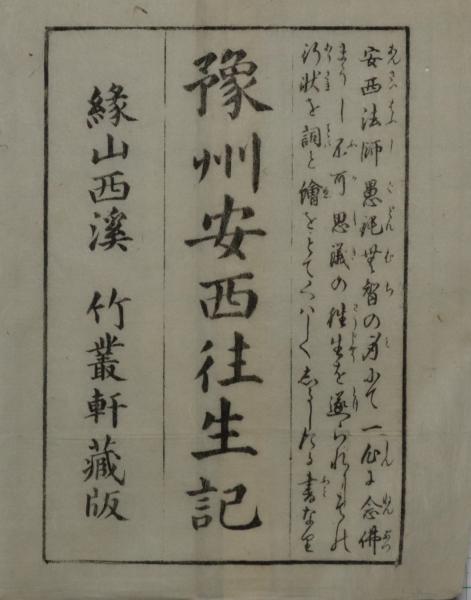 安西法師愚鈍無智の身にて一心に念佛
まうし不可思議の往生を遂られりその
行状を詞と繪をとてくはしくしるしたる書なり
豫州安西往生記
緣山西溪 竹叢軒藏版